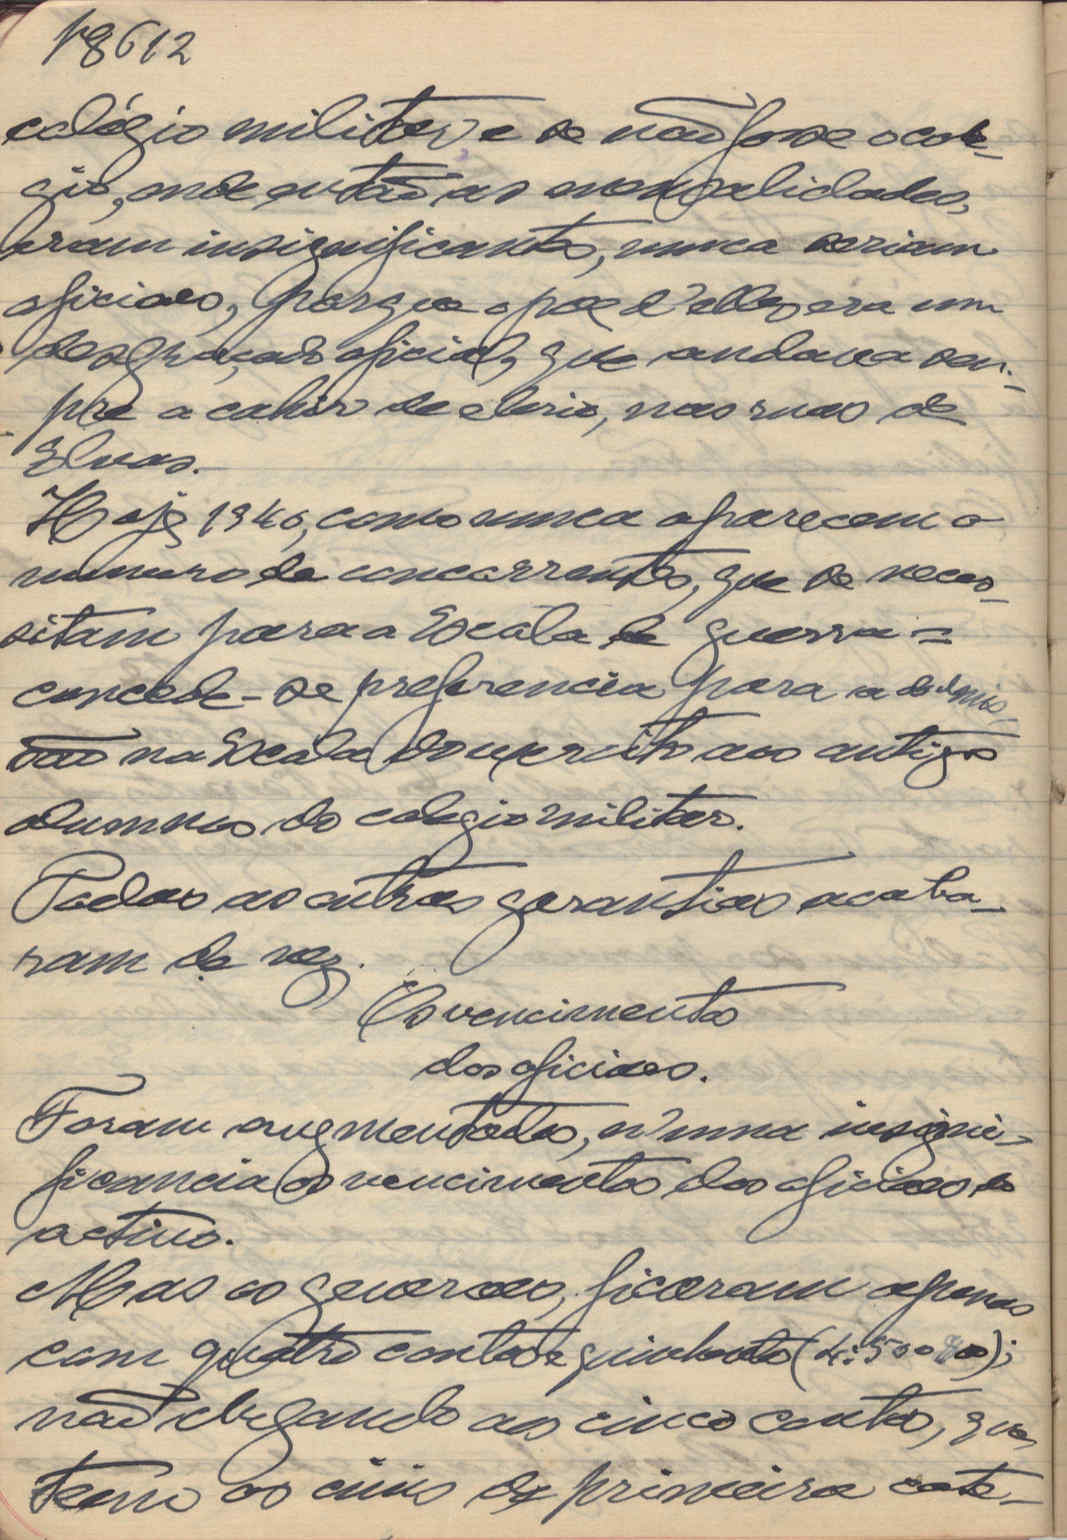 18612
colégio militar, e se não fosse o cole-
gio, onde então as mensalidades,
eram insignificantes, nunca seriam
oficiaes, porque o pae d'elles era um
desgraçado oficial, que andava sem-
pre a cahir de ebrio, nas ruas de
Elvas.
Hoje, 1940, como nunca aparecem o
numero de concorrentes, que se neces-
sitam para a Escala de guerra =
concede-se preferencia para a admis-
são na Escala do exercito aos antigos
alumnos do colegio militar.
Todas as outras garantias acaba-
ram de vez.
Os vencimentos
dos oficiaes.
Foram augmentados, n'uma insigni-
ficancia os vencimentos dos oficiaes do
activo.
Mas os generaes, ficaram apenas
com quatro contos e quinhentos (4:500$00);
não chegando aos cinco contos, que
teem os civis de primeira cate-